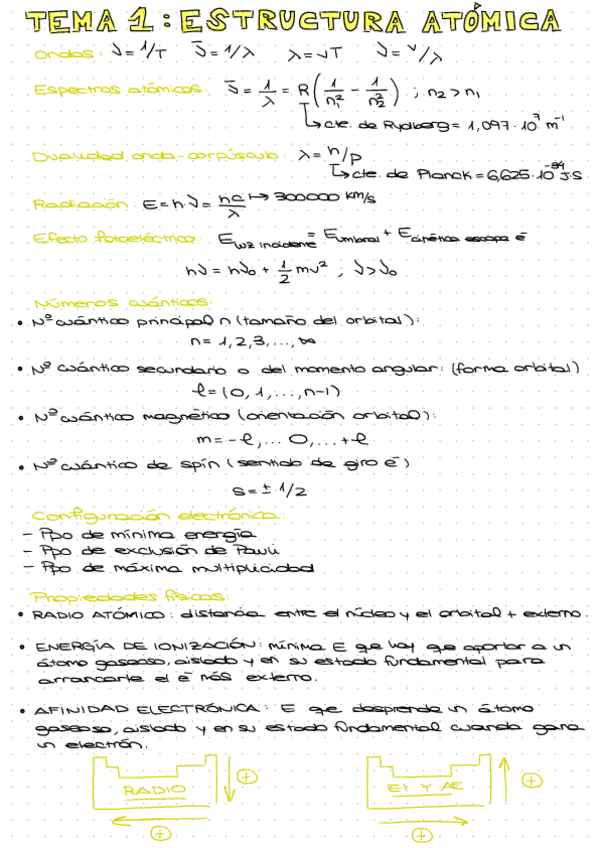 TEMA 1: ESTRUCTURA ATÓMICA
Ondas: ν = 1/T   ν̅ = 1/λ   λ = νT   ν = v/λ
Espectros atómicos: ν̅ = 1/λ = R(1/n₁² - 1/n₂²) ; n₂ > n₁
↳ cte. de Rydberg = 1,097·10⁷ m⁻¹
Dualidad onda-corpúsculo: λ = h/p
↳ cte. de Planck = 6,625·10⁻³⁴ J·S
Radiación: E = h·ν = hc/λ ↦ 300000 km/s
Efecto fotoeléctrico: E luz incidente = E umbral + E cinética escapa e⁻
hν = hν₀ + 1/2 mv² ; ν > ν₀
Números cuánticos:
• Nº cuántico principal n (tamaño del orbital):
n = 1, 2, 3, ..., ∞
• Nº cuántico secundario o del momento angular: (forma orbital)
ℓ = (0, 1, ..., n-1)
• Nº cuántico magnético (orientación orbital):
m = -ℓ, ... 0, ... +ℓ
• Nº cuántico de spín (sentido de giro e⁻)
s = ± 1/2
Configuración electrónica:
- Ppo de mínima energía
- Ppo de exclusión de Pauli
- Ppo de máxima multiplicidad
Propiedades físicas:
• RADIO ATÓMICO: distancia entre el núcleo y el orbital + externo.
• ENERGÍA DE IONIZACIÓN: mínima E que hay que aportar a un
átomo gaseoso, aislado y en su estado fundamental para
arrancarle el e⁻ más externo.
• AFINIDAD ELECTRÓNICA: E que desprende un átomo
gaseoso, aislado y en su estado fundamental cuando gana
un electrón.
RADIO ↓ +
← +
EI Y AE ↑ +
→ +